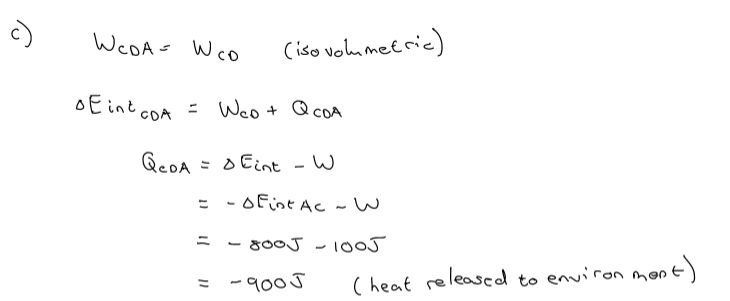 c) WCDA = WCD (isovolumetric)
ΔEint CDA = WCD + QCDA
QCDA = ΔEint - W
= - ΔEint AC - W
= - 800J - 100J
= -900J (heat released to environment)